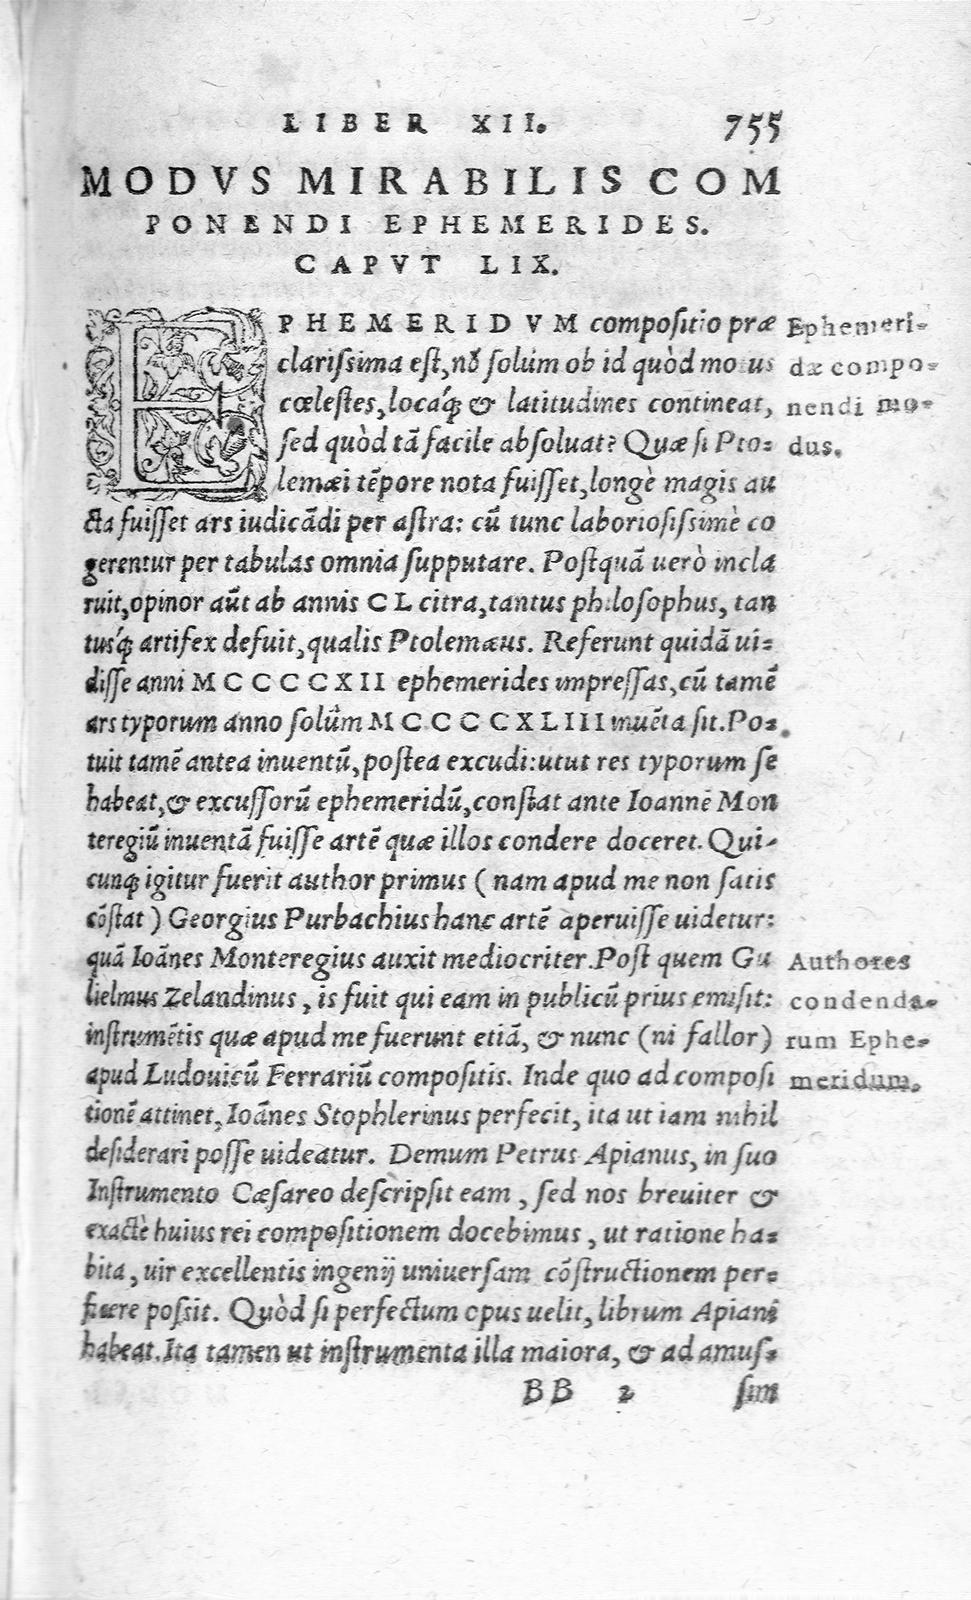 LIBER XII. 755
MODVS MIRABILIS COM
PONENDI EPHEMERIDES.
CAPVT LIX.
EPHEMERIDVM compositio præ
clarissima est, nõ solùm ob id quòd motus
cœlestes, locaq́; & latitudines contineat,
sed quòd tã facile absoluat? Quæ si Pto-
lemæi tẽpore nota fuisset, longè magis au
cta fuisset ars iudicãdi per astra: cũ tunc laboriosissimè co
gerentur per tabulas omnia supputare. Postquã uerò incla
ruit, opinor aũt ab annis CL citra, tantus philosophus, tan
tusq́; artifex defuit, qualis Ptolemæus. Referunt quidã ui-
disse anni MCCCCXII ephemerides impressas, cũ tamẽ
ars typorum anno solũm MCCCCXLIII inuẽta sit. Po-
tuit tamẽ antea inuentũ, postea excudi: utut res typorum se
habeat, & excussorũ ephemeridũ, constat ante Ioannẽ Mon
teregiũ inuentã fuisse artẽ quæ illos condere doceret. Qui-
cunq; igitur fuerit author primus ( nam apud me non satis
cõstat ) Georgius Purbachius hanc artẽ aperuisse uidetur:
quã Ioãnes Monteregius auxit mediocriter. Post quem Gu
lielmus Zelandinus, is fuit qui eam in publicũ prius emisit:
instrumẽtis quæ apud me fuerunt etiã, & nunc (ni fallor)
apud Ludouicũ Ferrariũ compositis. Inde quo ad composi
tionẽ attinet, Ioãnes Stophlerinus perfecit, ita ut iam nihil
desiderari posse uideatur. Demum Petrus Apianus, in suo
Instrumento Cæsareo descripsit eam, sed nos breuiter &
exactè huius rei compositionem docebimus, ut ratione ha-
bita, uir excellentis ingenij uniuersam cõstructionem per-
ficere possit. Quòd si perfectum opus uelit, librum Apiani
habeat. Ita tamen ut instrumenta illa maiora, & ad amus-
BB 2 sim
Ephemeri-
dæ compo-
nendi mo-
dus.
Authores
condenda-
rum Ephe-
meridum.